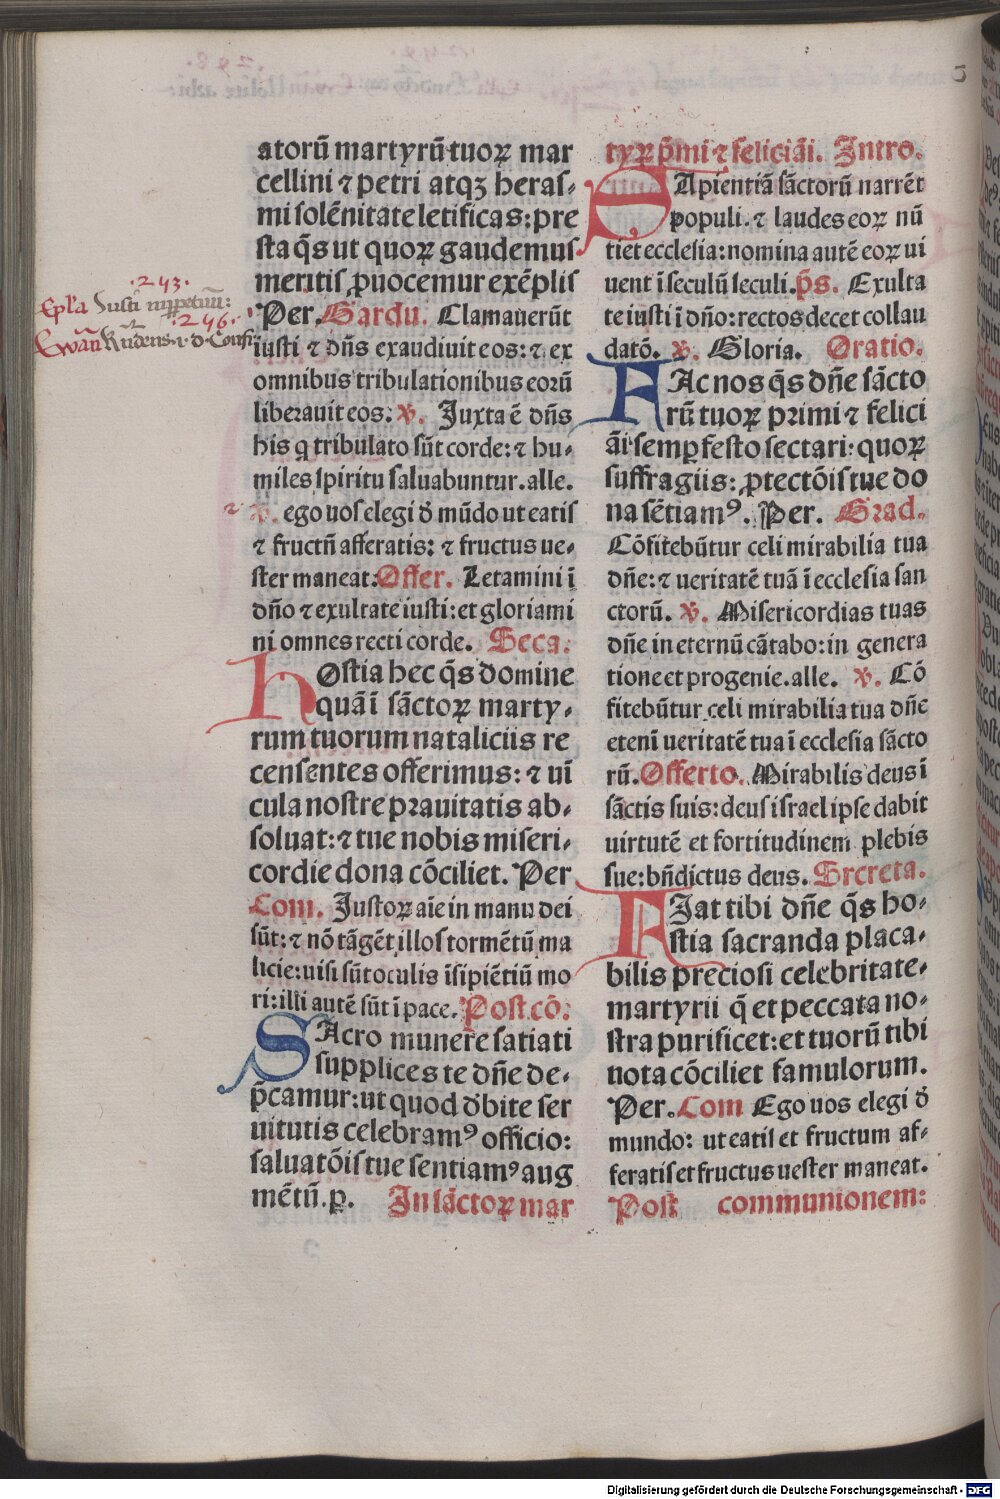 atorū martyrū tuoꝝ mar
cellini ⁊ petri atqꝫ heras⸗
mi solēnitate letificas: pre
sta q̄s ut quoꝝ gaudemus
meritis ꝓuocemur exēplis
Per. Gardu. Clamauerūt
iusti ⁊ dn̄s exaudiuit eos: ⁊ ex
omnibus tribulationibus eorū
liberauit eos: ℣. Juxta ē dn̄s
his q tribulato sūt corde: ⁊ hu⸗
miles spiritu saluabuntur. alle.
℣. ego uos elegi ð mūdo ut eatis
⁊ fructū afferatis: ⁊ fructus ue⸗
ster maneat: Offer. Letamini ī
dn̄o ⁊ exultate iusti: et gloriami
ni omnes recti corde. Seca:
hOstia hec q̄s domine
quā ī sāctoꝝ marty⸗
rum tuorum nataliciis re
censentes offerimus: ⁊ ui
cula nostre prauitatis ab⸗
soluat: ⁊ tue nobis miseri⸗
cordie dona cōciliet. Per
Com. Justoꝝ aīe in manu dei
sūt: ⁊ nō tāgēt illos tormētū ma
licie: uisi sūt oculis īsipiētiū mo
ri: illi autē sūt ī pace. Post cō:
SAcro munere satiati
supplices te dn̄e de⸗
p̄camur: ut quod ðbite ser
uitutis celebramꝰ officio:
saluatōis tue sentiamꝰ aug
mētū. p. In sāctoꝝ mar
tyꝝ p̄mi ⁊ feliciāi. Intro.
SApientiā sāctorū narrēt
populi. ⁊ laudes eoꝝ nū
tiet ecclesia: nomina autē eoꝝ ui
uent ī seculū seculi. p̄s. Exulta
te iusti ī dn̄o: rectos decet collau
datō. ℣. Gloria. Oratio.
FAc nos q̄s dn̄e sācto
rū tuoꝝ primi ⁊ felici
āi semꝑ festo sectari: quoꝝ
suffragiis: ꝓtectōis tue do
na sētiamꝰ. Per. Grad.
Cōfitebūtur celi mirabilia tua
dn̄e: ⁊ ueritatē tuā ī ecclesia san
ctorū. ℣. Misericordias tuas
dn̄e in eternū cātabo: in genera
tione et progenie. alle. ℣. Cō
fitebūtur celi mirabilia tua dn̄e
etenī ueritatē tua ī ecclesia sācto
rū. Offerto. Mirabilis deus ī
sāctis suis: deus israel ipse dabit
uirtutē et fortitudinem plebis
sue: bn̄dictus deus. Srcreta.
FIat tibi dn̄e q̄s ho⸗
stia sacranda placa⸗
bilis preciosi celebritate⸗
martyrii q̄ et peccata no⸗
stra purificet: et tuorū tibi
uota cōciliet famulorum.
Per. Com Ego uos elegi ð
mundo: ut eatis et fructum af⸗
feratis et fructus uester maneat.
Post communionem:
.243.
Ep̄la
.246.
Ewān
Digitalisierung gefördert durch die Deutsche Forschungsgemeinschaft - DFG